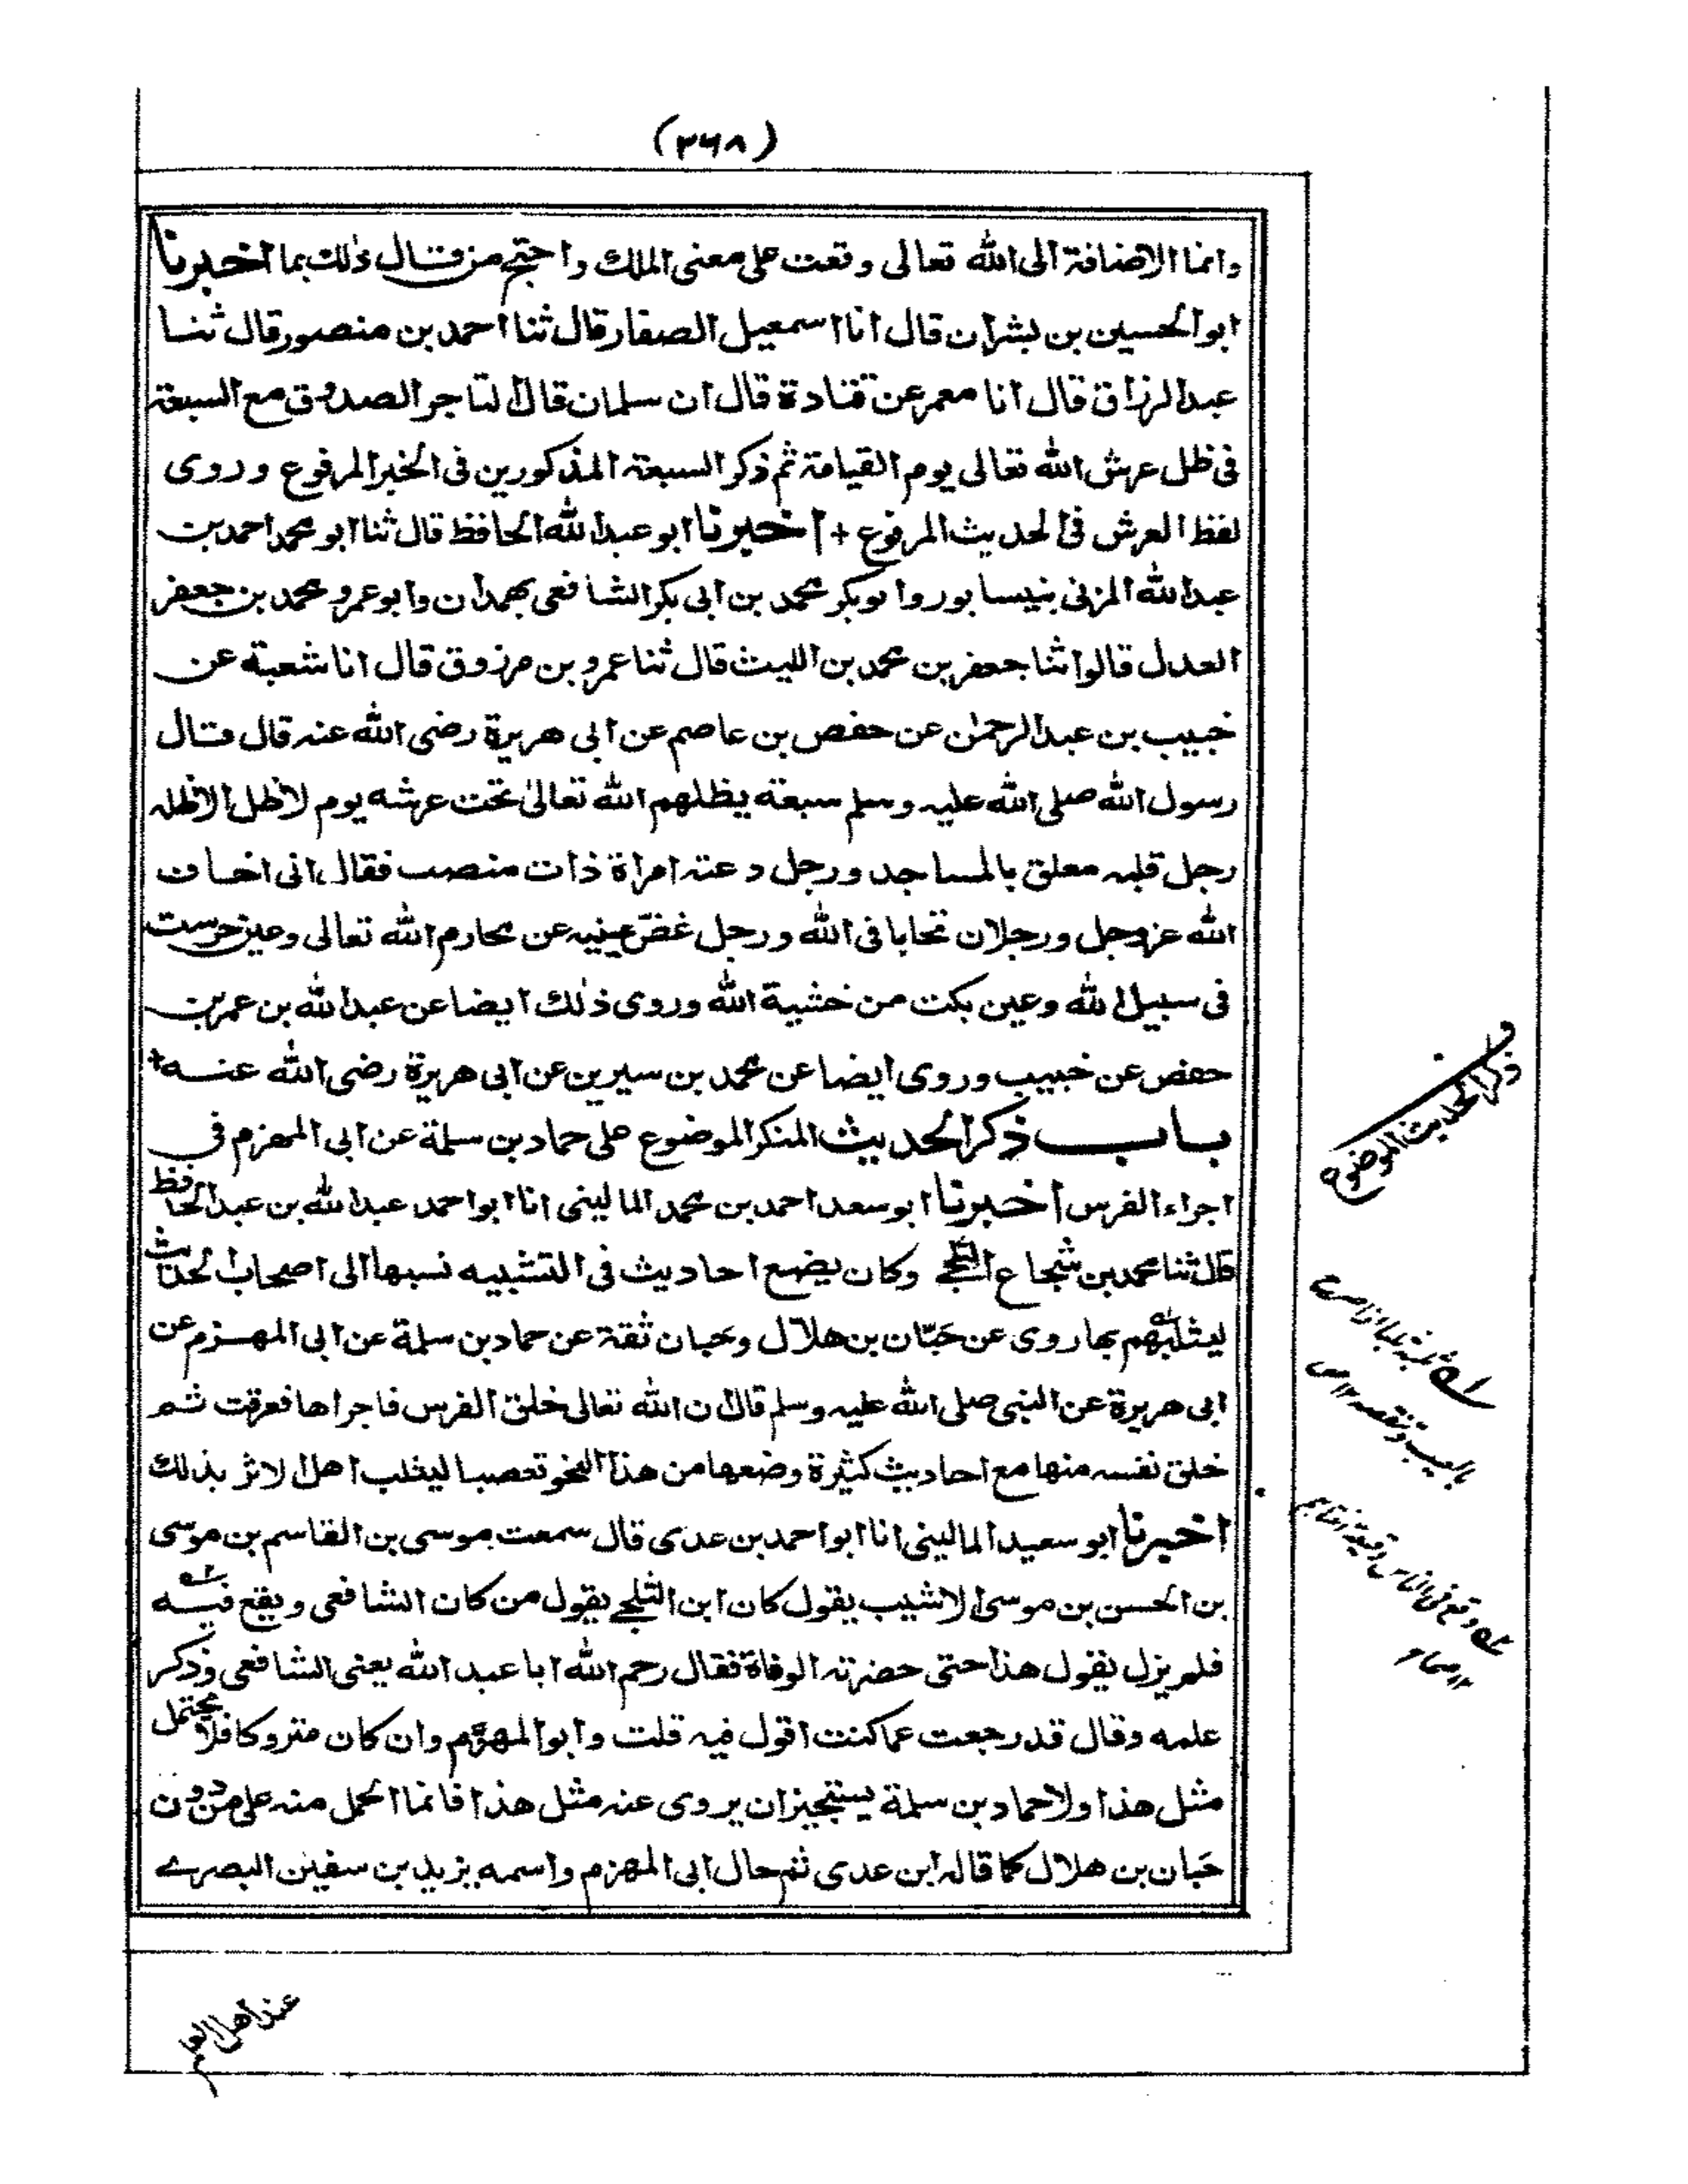 (٢٦٨)
وانما الاضافة الى الله تعالى وقعت على معنى الملك واحتج من قال ذلك بما اخبرنا
ابو الحسين بن بشران قال انا اسمعيل الصفار قال ثنا احمد بن منصور قال ثنا
عبد الرزاق قال انا معمر عن قتادة قال ان سلمان قال التاجر الصدوق مع السبعة
فى ظل عرش الله تعالى يوم القيامة ثم ذكر السبعة المذكورين فى الخبر المرفوع وروى
لفظ العرش فى الحديث المرفوع + اخبرنا ابو عبد الله الحافظ قال ثنا ابو محمد احمد بن
عبد الله المزنى بنيسابور وابو بكر محمد بن ابى بكر الشافعى بهمدان وابو عمرو محمد بن جعفر
العدل قالوا ثنا جعفر بن محمد بن الليث قال ثنا عمرو بن مرزوق قال انا شعبة عن
خبيب بن عبد الرحمٰن عن حفص بن عاصم عن ابى هريرة رضى الله عنه قال قال
رسول الله صلى الله عليه وسلم سبعة يظلهم الله تعالىٰ تحت عرشه يوم لا ظل الا ظله
رجل قلبه معلق بالمساجد ورجل دعته امراة ذات منصب فقال انى اخاف
الله عزوجل ورجلان تحابا فى الله ورجل غضّ عينيه عن محارم الله تعالى وعين حرست
فى سبيل الله وعين بكت من خشية الله وروى ذٰلك ايضا عن عبد الله بن عمر بن
حفص عن خبيب وروى ايضا عن محمد بن سيرين عن ابى هريرة رضى الله عنه +
باب ذكر الحديث المنكر الموضوع على حماد بن سلمة عن ابى المهزم فى
اجراء الفرس اخبرنا ابو سعد احمد بن محمد المالينى انا ابو احمد عبد الله بن عبد الحافظ
قال ثنا محمد بن شجاع الثلجى وكان يضع احاديث فى التشبيه نسبها الى اصحاب الحديث
ليثلبهم بها روى عن حَبّان بن هلال وحَبان ثقة عن حماد بن سلمة عن ابى المهزم عن
ابى هريرة عن النبى صلى الله عليه وسلم قال ان الله تعالى خلق الفرس فاجراها فعرقت ثم
خلق نفسه منها مع احاديث كثيرة وضعها من هذا النحو تعصبا ليغلب اهل الاثر بذلك
اخبرنا ابو سعيد المالينى انا ابو احمد بن عدى قال سمعت موسى بن القاسم بن موسى
بن الحسن بن موسى الاشيب يقول كان ابن الثلجى يقول من كان الشافعى ويقع فيه
فلم يزل يقول هذا حتى حضرته الوفاة فقال رحم الله ابا عبد الله يعنى الشافعى وذكر
علمه وقال قد رجعت عما كنت اقول فيه قلت وابو المهزّم وان كان متروكا فلا يحتمل
مثل هذا ولا حماد بن سلمة يستجيز ان يروى عنه مثل هذا فانما الحمل منه على من دون
حَبان بن هلال كما قاله ابن عدى ثم حال ابى المهزم واسمه يزيد بن سفين البصرے
ذكر الحديث الموضوع
بالعيب وتنقصه ١٢ ص
وقع فى الناس
١٢ صحاح
عند اهل العلم